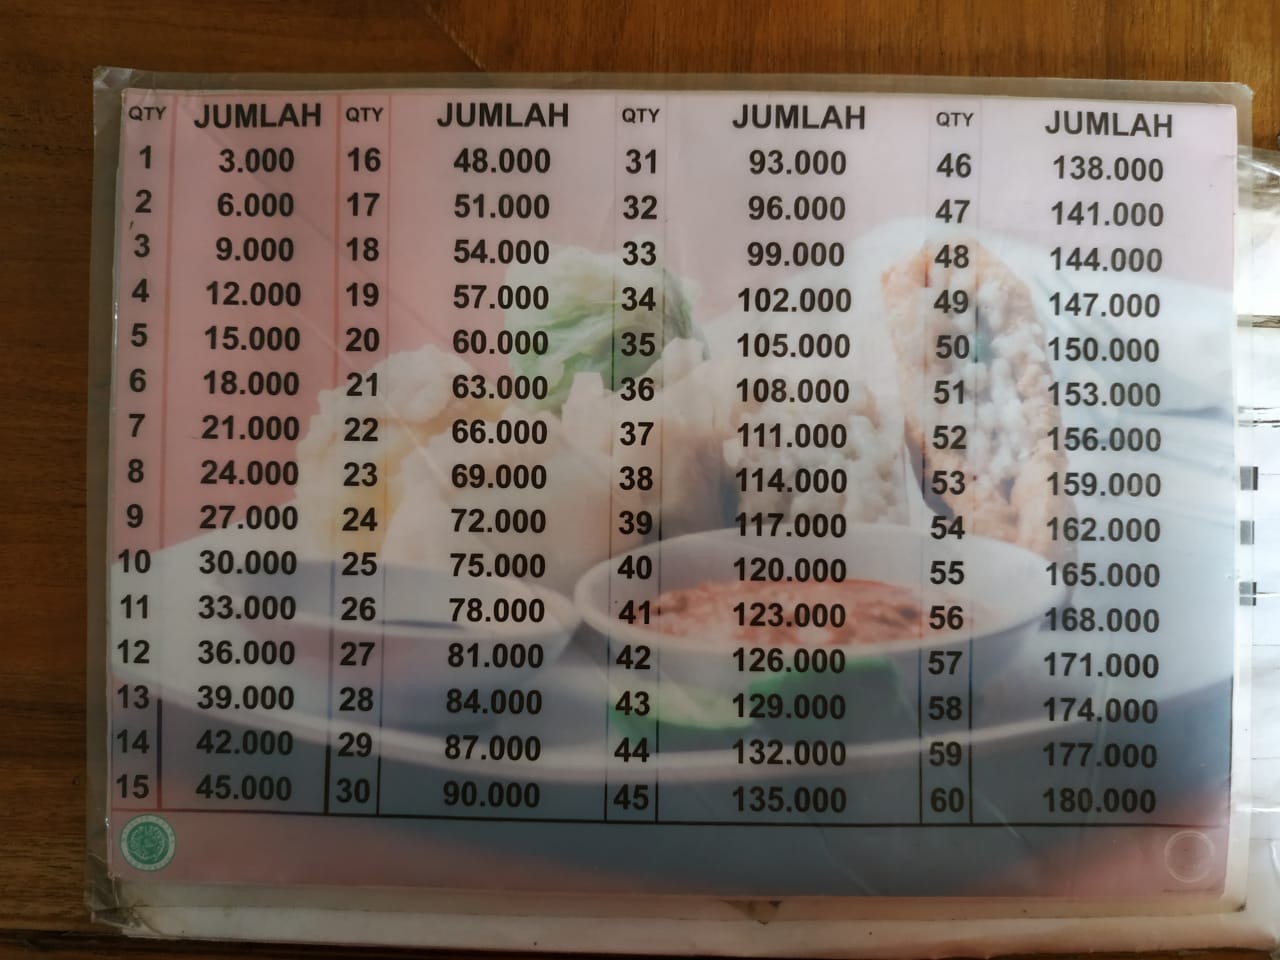 QTY JUMLAH QTY JUMLAH QTY JUMLAH QTY JUMLAH
1 3.000 16 48.000 31 93.000 46 138.000
2 6.000 17 51.000 32 96.000 47 141.000
3 9.000 18 54.000 33 99.000 48 144.000
4 12.000 19 57.000 34 102.000 49 147.000
5 15.000 20 60.000 35 105.000 50 150.000
6 18.000 21 63.000 36 108.000 51 153.000
7 21.000 22 66.000 37 111.000 52 156.000
8 24.000 23 69.000 38 114.000 53 159.000
9 27.000 24 72.000 39 117.000 54 162.000
10 30.000 25 75.000 40 120.000 55 165.000
11 33.000 26 78.000 41 123.000 56 168.000
12 36.000 27 81.000 42 126.000 57 171.000
13 39.000 28 84.000 43 129.000 58 174.000
14 42.000 29 87.000 44 132.000 59 177.000
15 45.000 30 90.000 45 135.000 60 180.000